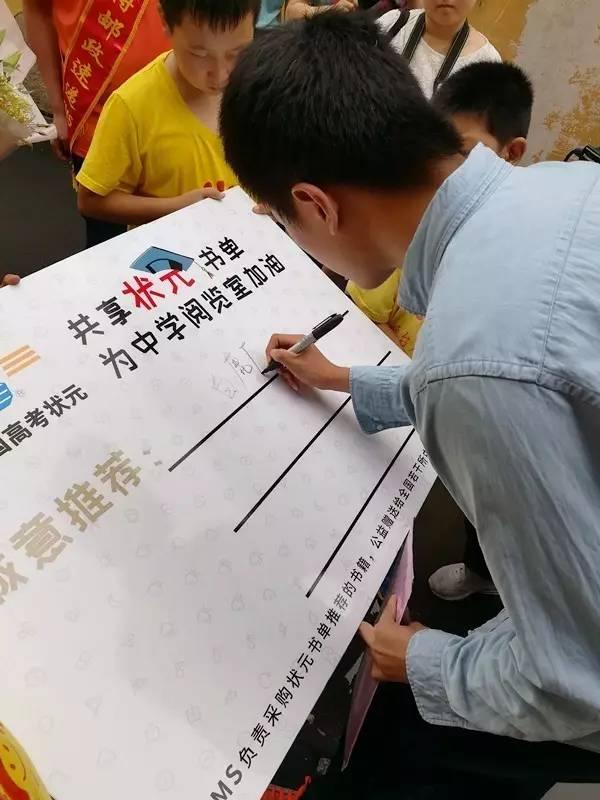 邮政速递
共享状元书单
为中学阅览室加油
国高考状元
诚意推荐：
MS负责采购状元书单推荐的书籍，公益赠送给全国若干所